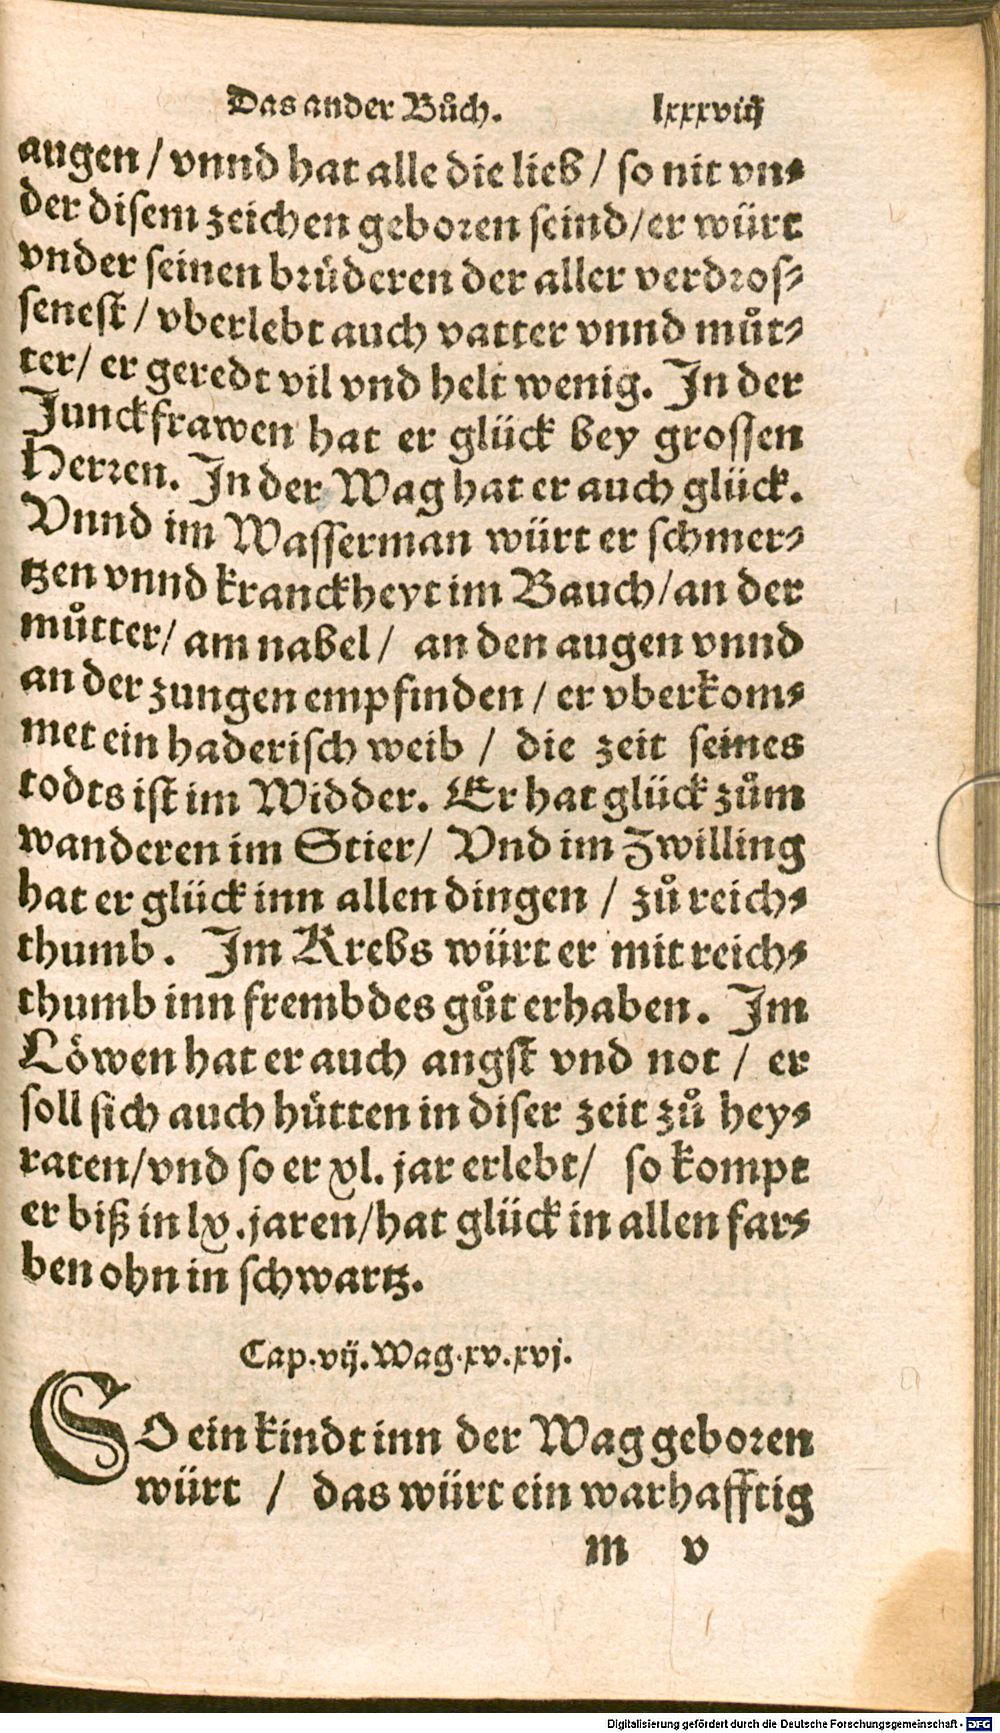 Das ander Bůch. lxxxviij
augen / vnnd hat alle die lieb / so nit vn⸗
der disem zeichen geboren seind/er würt
vnder seinen brüderen der aller verdros⸗
senest / vberlebt auch vatter vnnd můt⸗
ter/ er geredt vil vnd helt wenig. In der
Junckfrawen hat er glück bey grossen
Herren. In der Wag hat er auch glück.
Vnnd im Wasserman würt er schmer⸗
tzen vnnd kranckheyt im Bauch/an der
můtter/ am nabel / an den augen vnnd
an der zungen empfinden / er vberkom⸗
met ein haderisch weib / die zeit seines
todts ist im Widder. Er hat glück zům
wanderen im Stier/ Vnd im Zwilling
hat er glück inn allen dingen / zů reich⸗
thumb. Im Krebs würt er mit reich⸗
thumb inn frembdes gůt erhaben. Im
Löwen hat er auch angst vnd not / er
soll sich auch hütten in diser zeit zů hey⸗
raten/vnd so er xl. jar erlebt/ so kompt
er biß in lx. jaren/hat glück in allen far⸗
ben ohn in schwartz.
Cap. vij. Wag. xv. xvj.
SO ein kindt inn der Wag geboren
würt / das würt ein warhafftig
m v
Digitalisierung gefördert durch die Deutsche Forschungsgemeinschaft - DFG